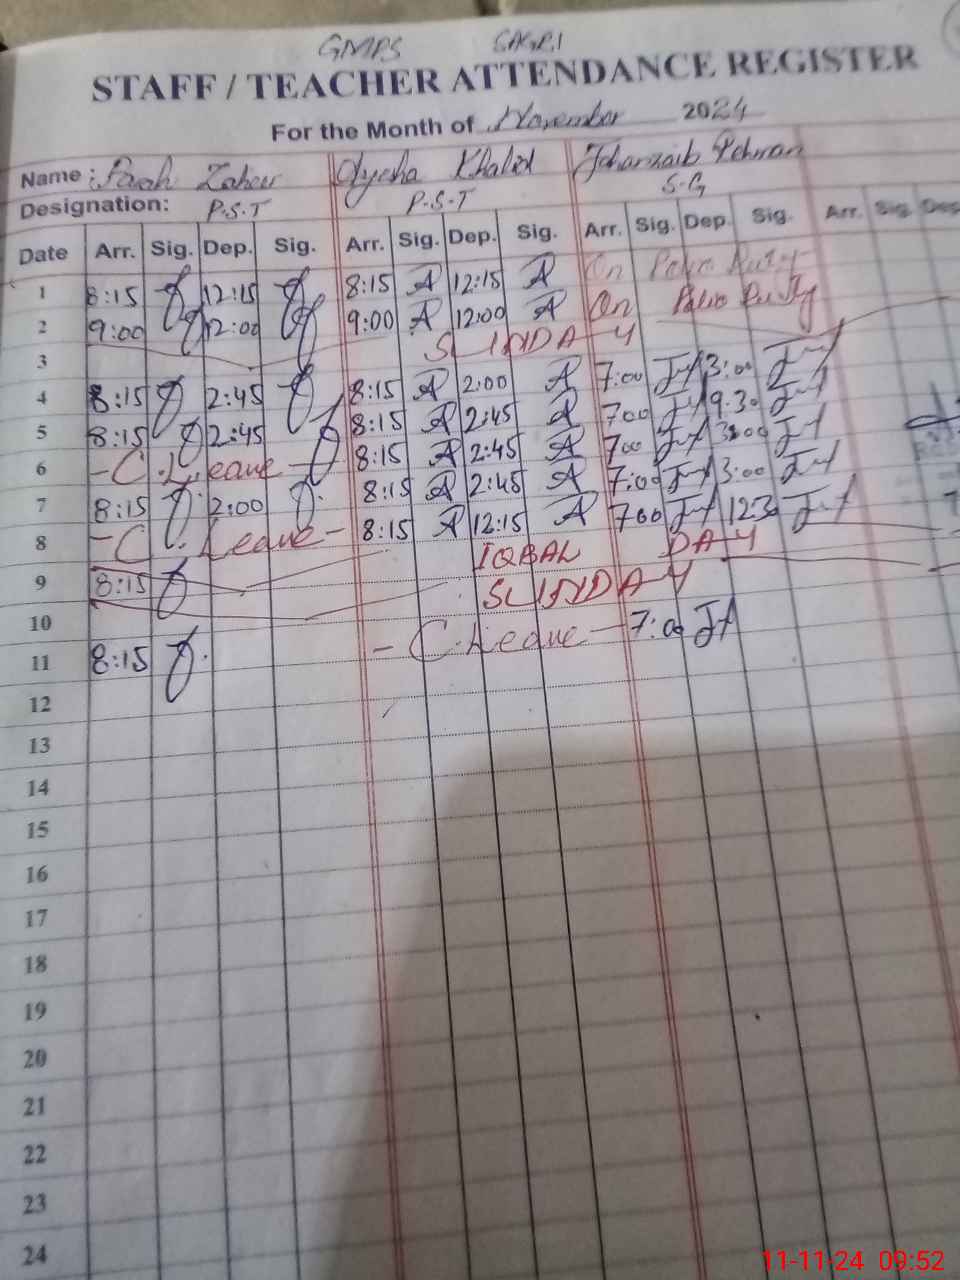 GMPS SAGRI
STAFF / TEACHER ATTENDANCE REGISTER
For the Month of November 2024
Name: Farah Zaheer Ayesha Khalid Jehanzaib Rehman
Designation: P.S.T P.S.T S.G
Date Arr. Sig. Dep. Sig. Arr. Sig. Dep. Sig. Arr. Sig. Dep. Sig. Arr. Sig. Dep.
1 8:15 12:15 8:15 A 12:15 A On Polio Duty
2 9:00 12:00 9:00 A 12:00 A On Polio Duty
3 SUNDAY
4 8:15 2:45 8:15 A 2:00 A 7:00 3:00
5 8:15 2:45 8:15 A 2:45 A 700 9:30
6 - C. Leave - 8:15 A 2:45 A 700 3:00
7 8:15 2:00 8:15 A 2:45 A 7:00 3:00
8 - C. Leave - 8:15 A 12:15 A 700 12:30
9 8:15 IQBAL DAY
10 SUNDAY
11 8:15 - C. Leave - 7:00
12
13
14
15
16
17
18
19
20
21
22
23
24
11-11-24 09:52